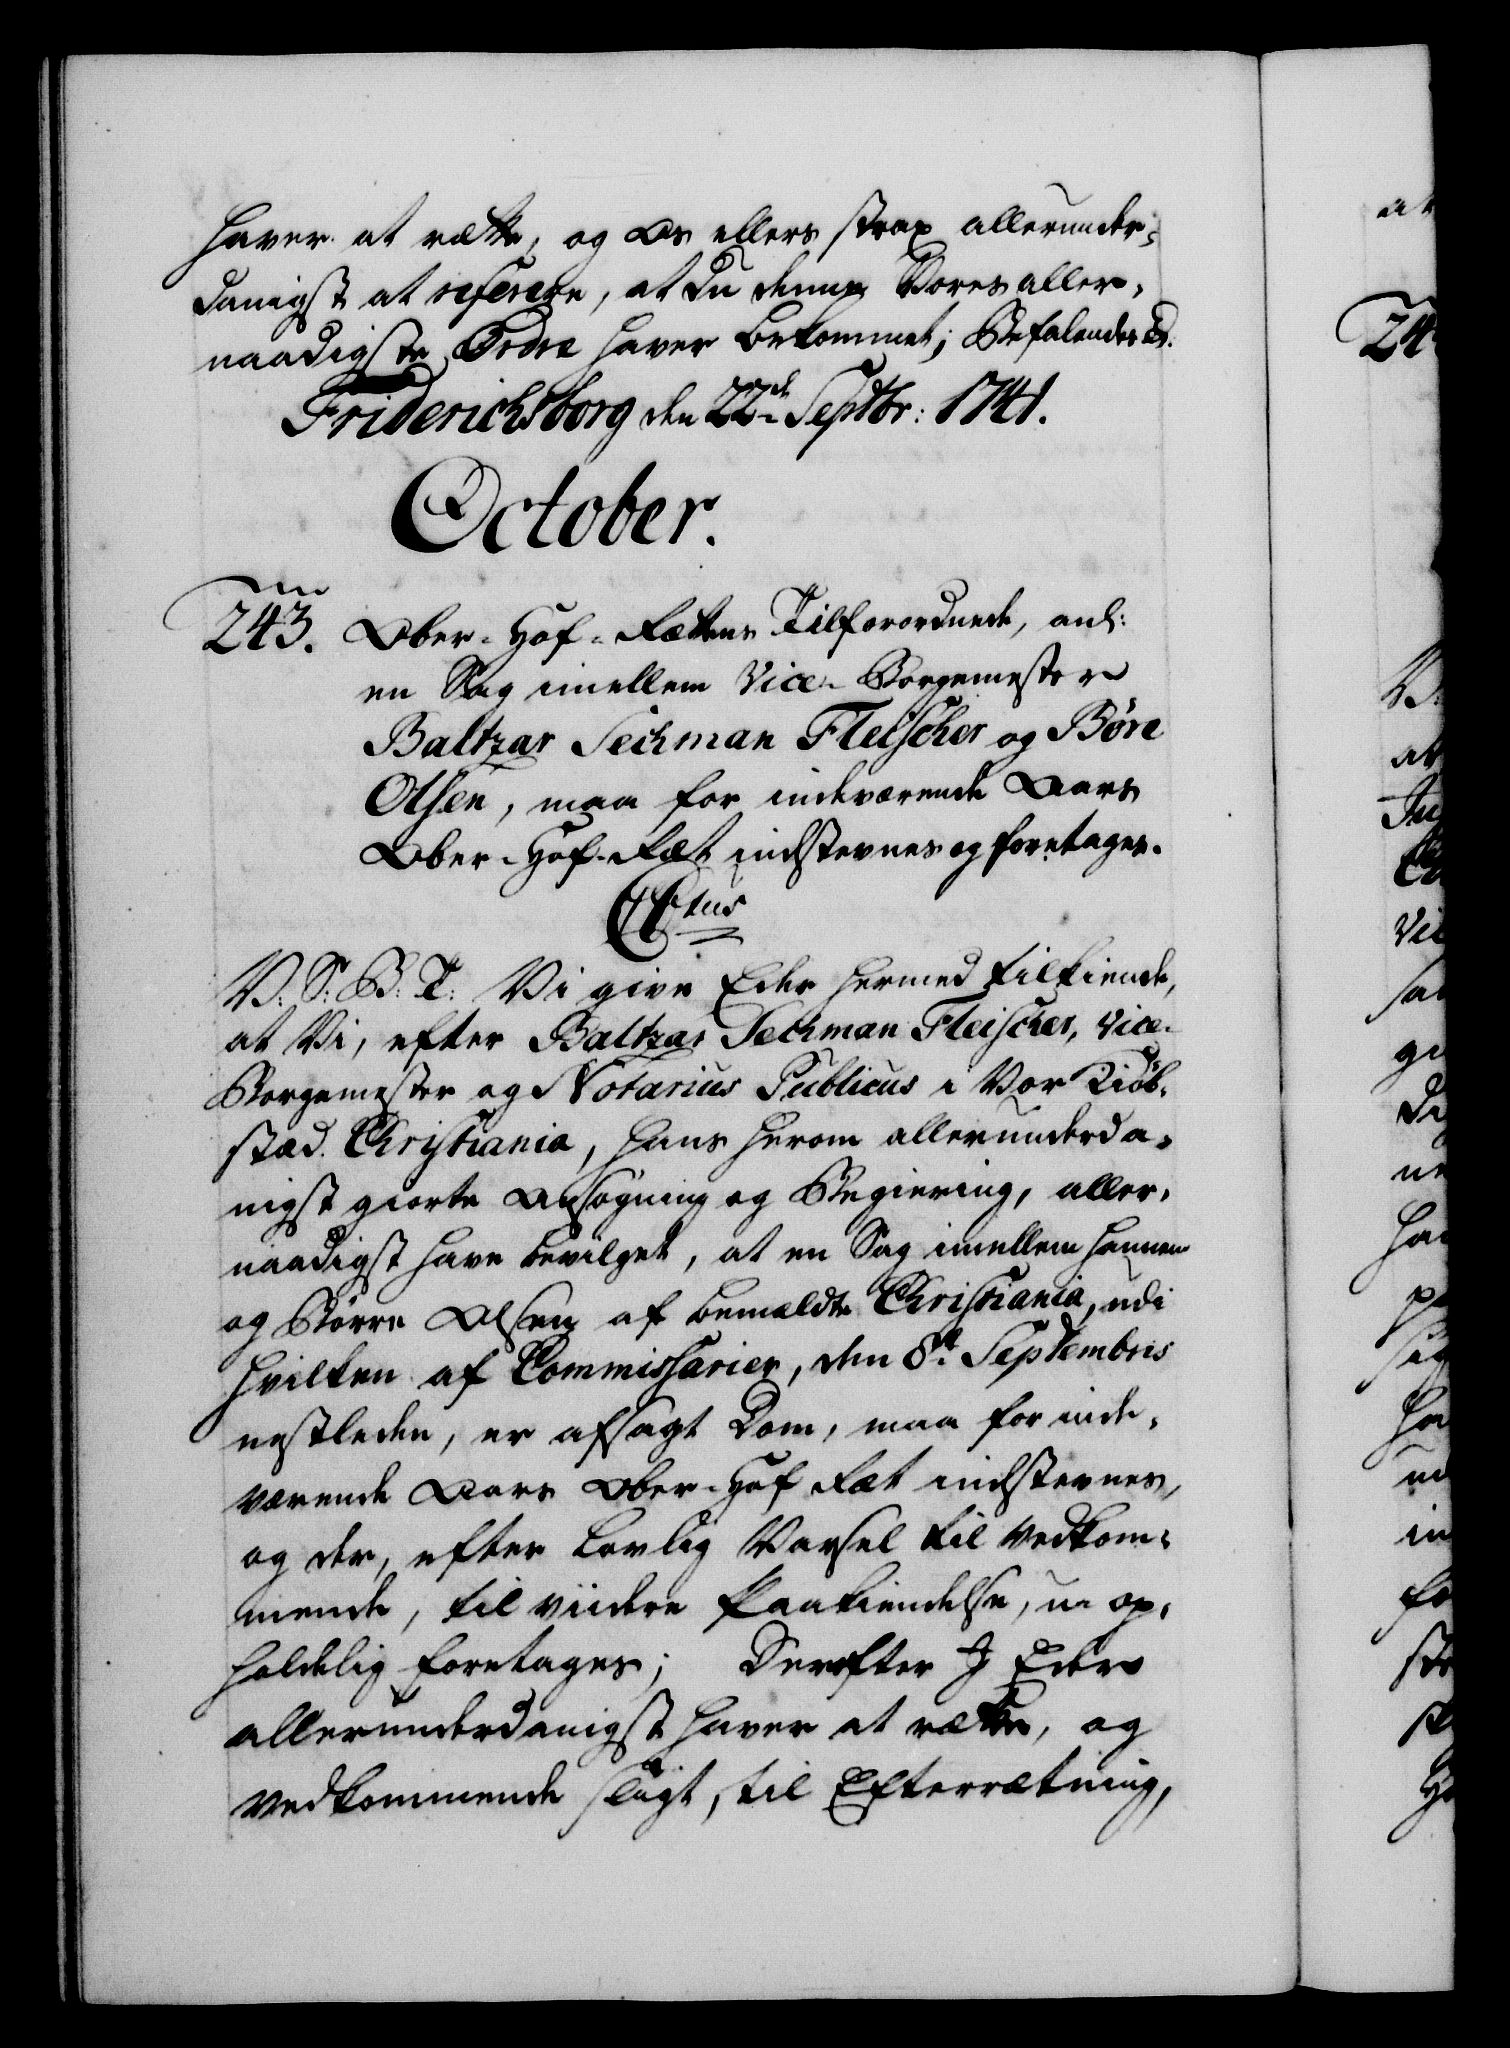 haver at rætte, og Os ellers strax allerunder-
danigst at referere, at Du denne Vores aller-
naadigste Ordre haver bekommet; Befalendes &.
Friderichsborg den 22de Septbr: 1741.
October.
243. Ober-Hof-Rættens Tilforordnede, anl:
en Sag imellem Vice-Borgemester
Baltzar Sechman Fleischer og Børe
Olsen, maa for indeværende Aars
Ober-Hof-Ræt indstevnes og foretages.
V: S: B: T: Vi give Eder hermed tilkiende,
at Vi, efter Baltzar Sechman Fleischer, Vice-
Borgemester og Notarius Publicus i Vor Kiøb-
stæd Christiania, hans herom allerunderda-
nigst giorte Ansøgning og Begiering, aller-
naadigst have bevilget, at en Sag imellem hannem
og Børre Olsen af bemældte Christiania, udi
hvilken af Commissarier, den 8de Septembris
nestleden, er afsagt Dom, maa for inde-
værende Aars Ober-Hof-Ræt indstevnes,
og der, efter lovlig Varsel til vedkom-
mende, til viidere Paakiendelse, u-op-
holdelig foretages; Derefter I Eder
allerunderdanigst haver at rætte, og
vedkommende sligt, til Efterrætning,